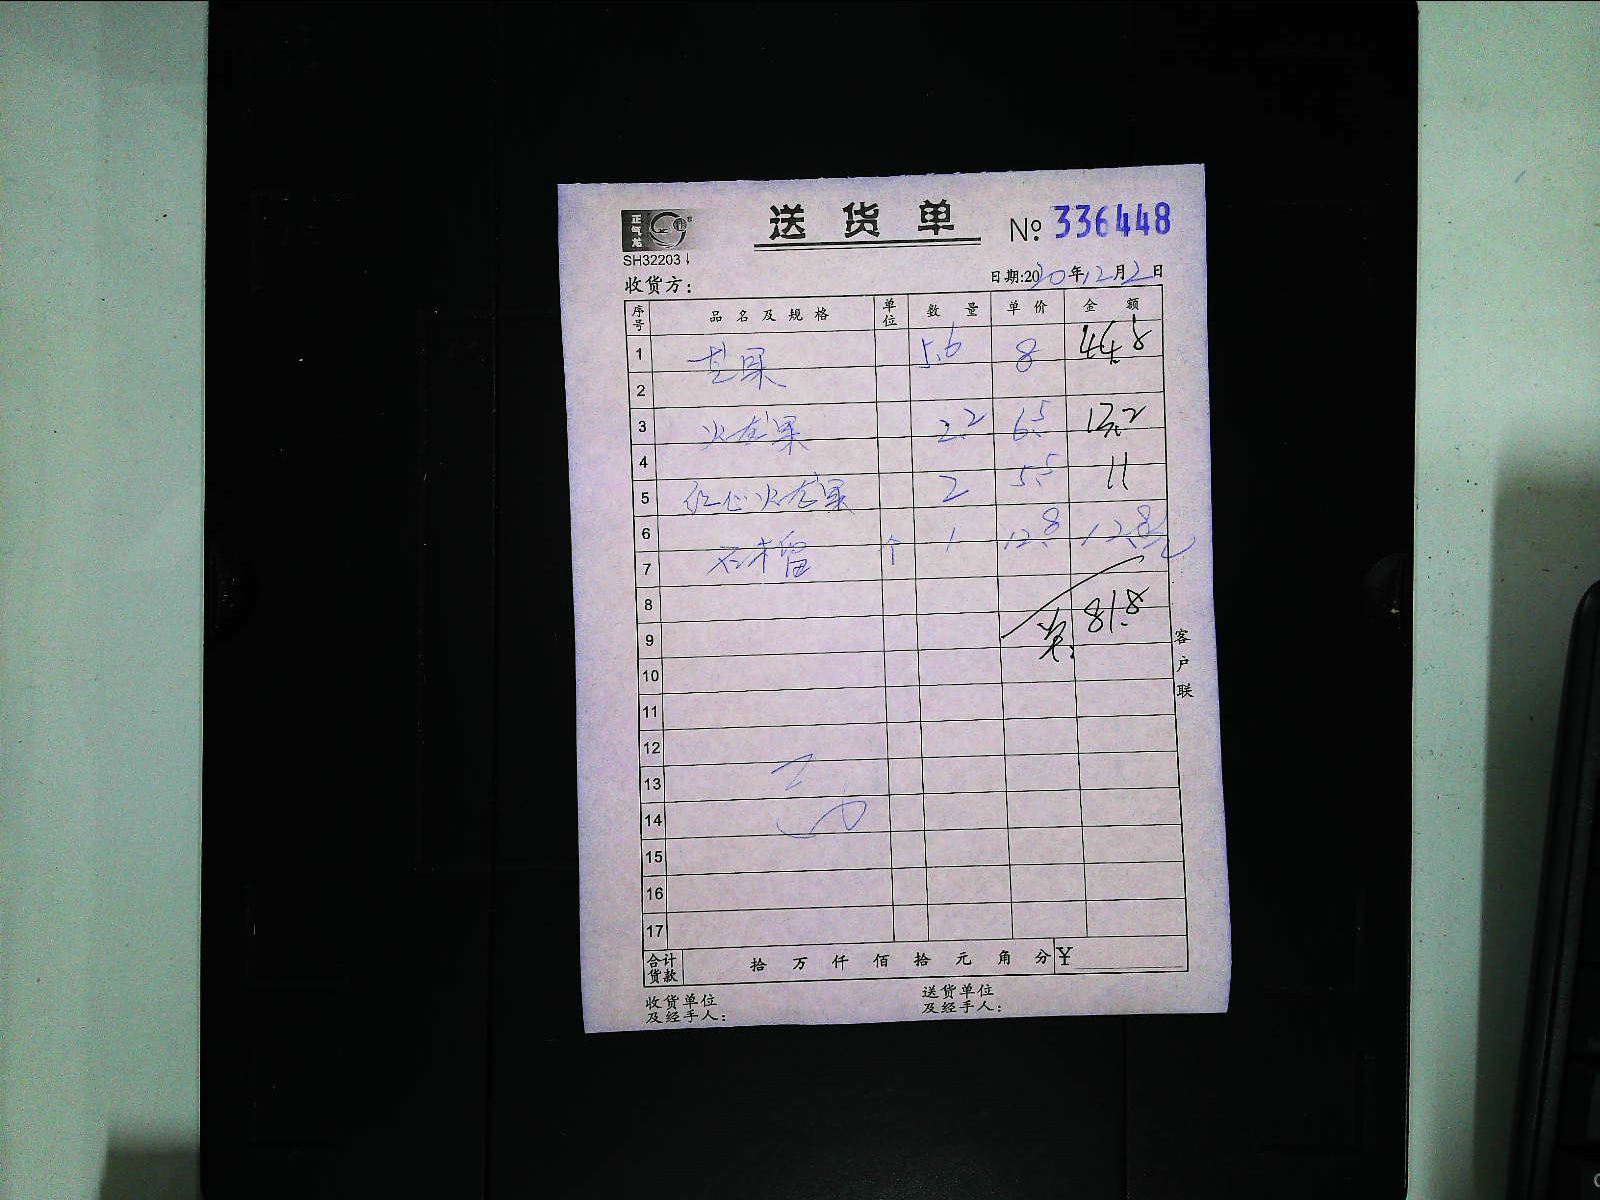 正气龙
SH32203
送货单
№ 336448
收货方:
日期:2020年12月2日
序号 品名及规格 单位 数量 单价 金额
1 芒果 5.6 8 44.8
2
3 火龙果 2.2 6.5 13.2
4
5 红心火龙果 2 5.5 11
6
7 石榴 个 1 12.8 12.8元
8
9 81.8
10
11
12
13
14
15
16
17
合计货款 拾 万 仟 佰 拾 元 角 分 ¥
收货单位
及经手人:
送货单位
及经手人:
客户联